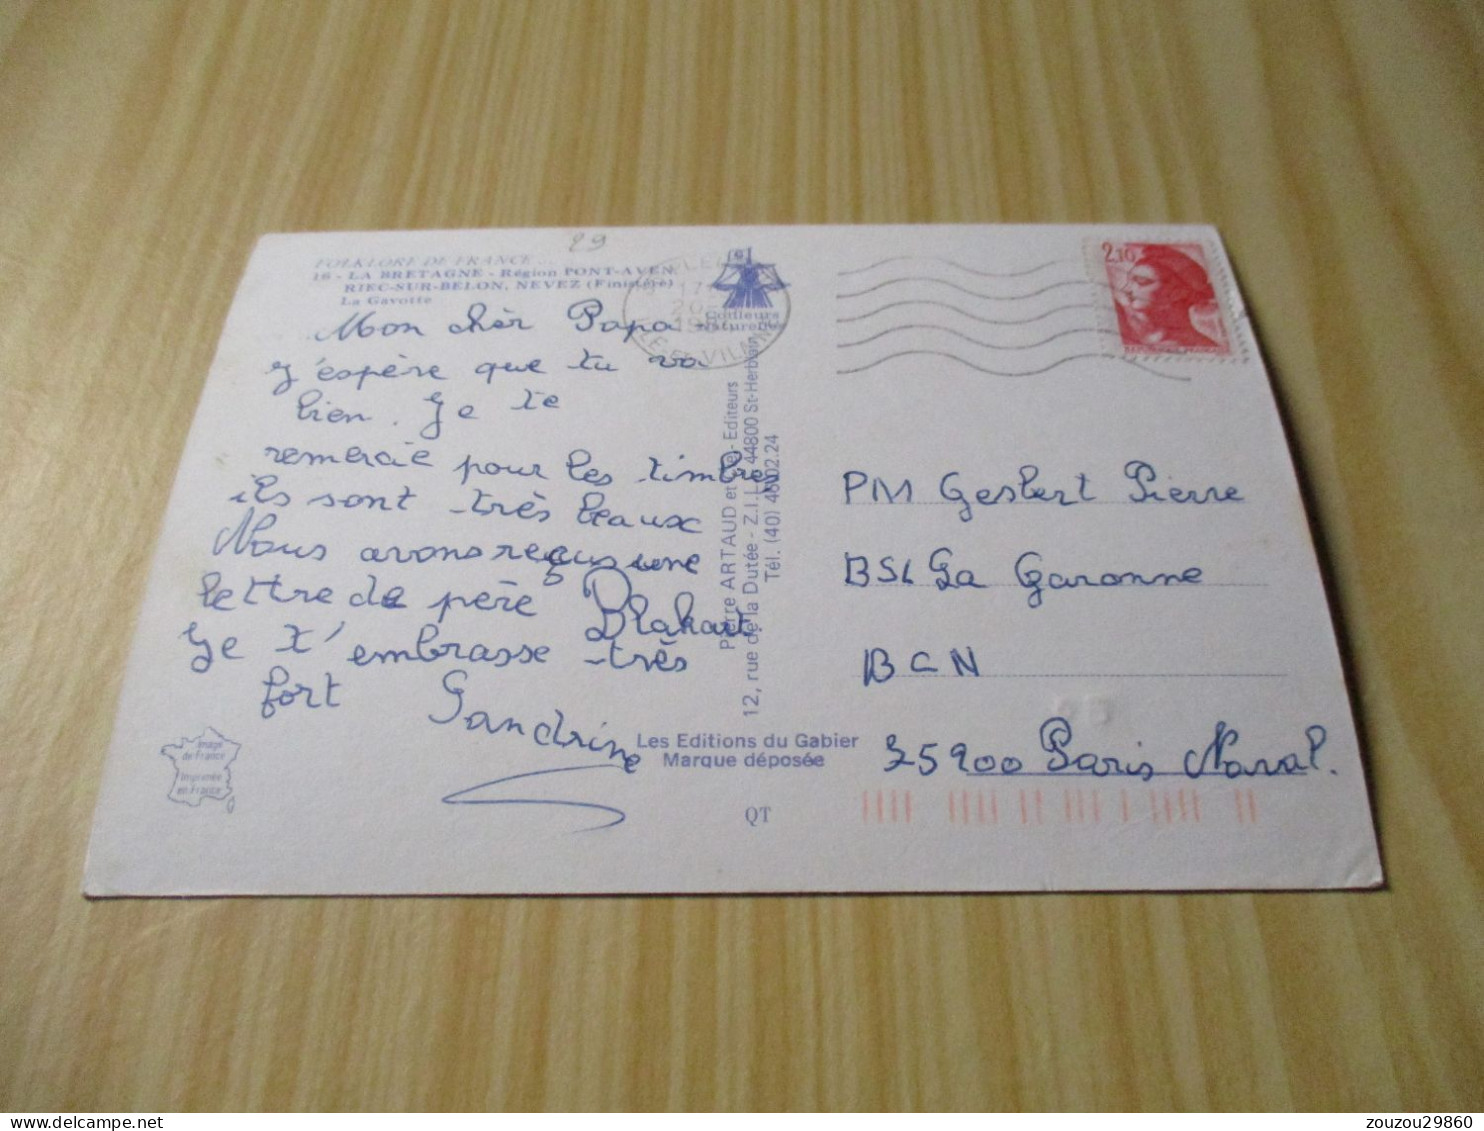 29
FOLKLORE DE FRANCE
16 - LA BRETAGNE - Région PONT-AVEN
RIEC-SUR-BELON, NEVEZ (Finistère)
La Gavotte
Mon chèr Papa
J'espère que tu va
bien. Je te
remercie pour les timbres
ils sont très beaux
Nous avons reçus une
lettre de père
Je t'embrasse très
fort Sandrine
Image
de France
Imprimée
en France
17
20
ILLE ET VILAINE
Couleurs
Naturelles
Pierre ARTAUD et Cie - Editeurs
12, rue de la Dutée - Z.I.L. 44800 St-Herblain
Tél. (40) 46.02.24
Les Editions du Gabier
Marque déposée
QT
2,10
PM Gesbert Pierre
BSL La Garonne
BCN
35200 Paris Naval.
zouzou29860